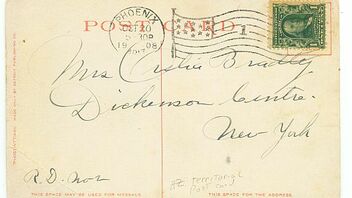 POST CARD
PHOENIX
OCT 20
1908
1
Mrs Bradley
Dickenson Centre.
New York
R.D. No 2
territorial
post card
THIS SPACE MAY BE USED FOR MESSAGE
THIS SPACE IS FOR THE ADDRESS